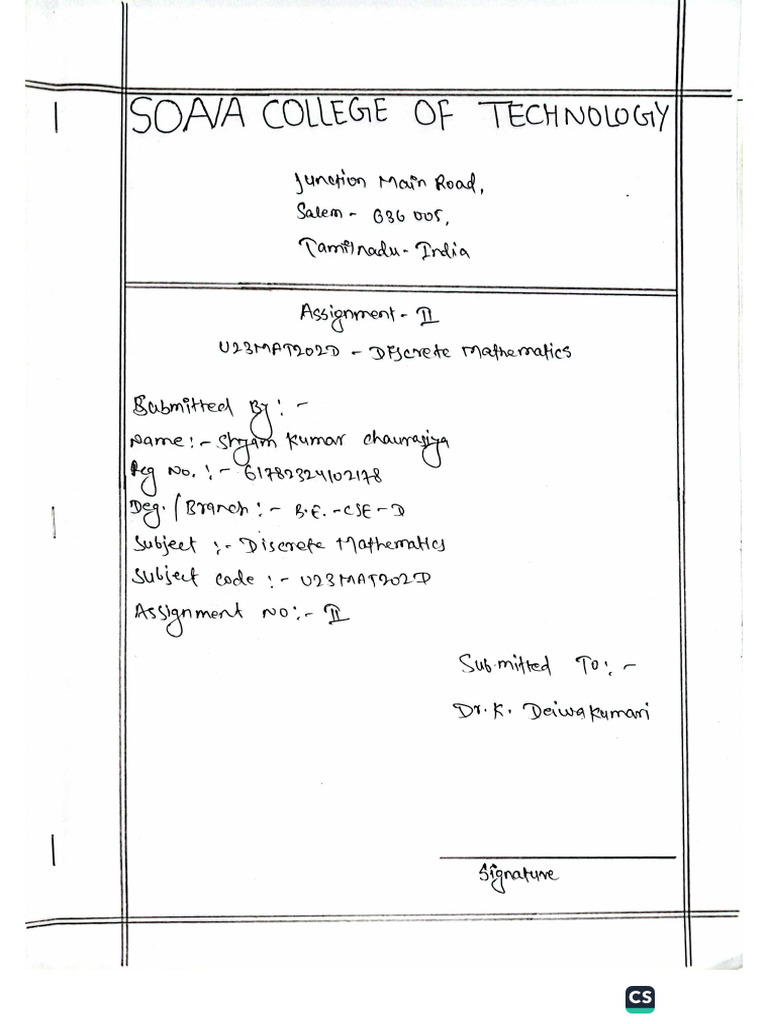 SONA COLLEGE OF TECHNOLOGY
Junction Main Road,
Salem - 636 005,
Tamilnadu - India
Assignment - II
U23MAT202D - Discrete Mathematics
Submitted By : -
Name : - Shyam Kumar Chaurasiya
Reg No. : - 61782324102178
Deg. / Branch : - B.E. - CSE - D
Subject : - Discrete Mathematics
Subject code : - U23MAT202D
Assignment No : - II
Submitted To : -
Dr. K. Deiwakumari
Signature
CS